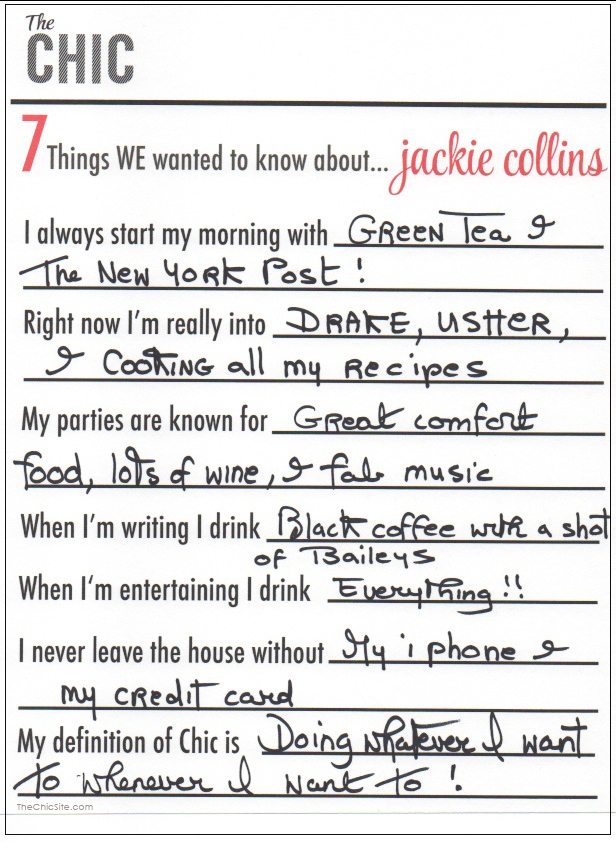 The
CHIC
7 Things WE wanted to know about... jackie collins
I always start my morning with Green Tea &
The New York Post!
Right now I'm really into DRAKE, USHER,
& Cooking all my recipes
My parties are known for Great comfort
food, lots of wine, & fab music
When I'm writing I drink Black coffee with a shot
of Baileys
When I'm entertaining I drink Everything!!
I never leave the house without My i phone &
my credit card
My definition of Chic is Doing whatever I want
to whenever I want to!
TheChicSite.com